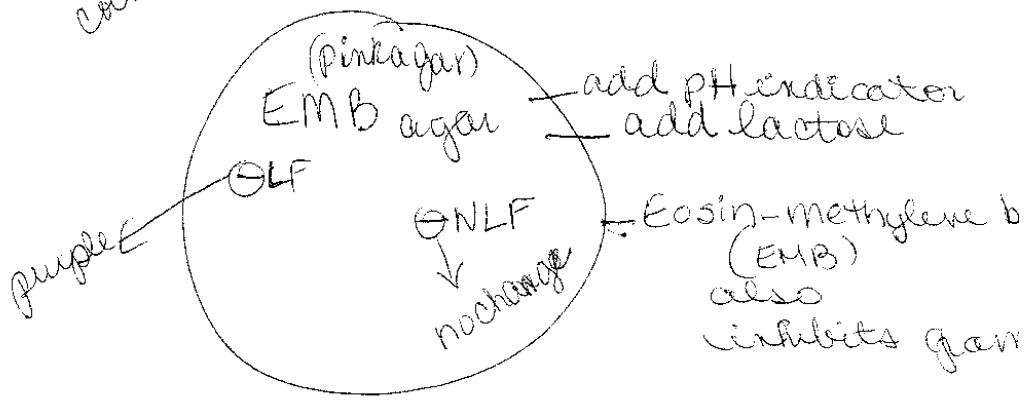 (pinkagar)
EMB agar
add pH indicator
add lactose
⊖LF
purple
⊖NLF
nochange
Eosin-methylene b
(EMB)
also
inhibits gram